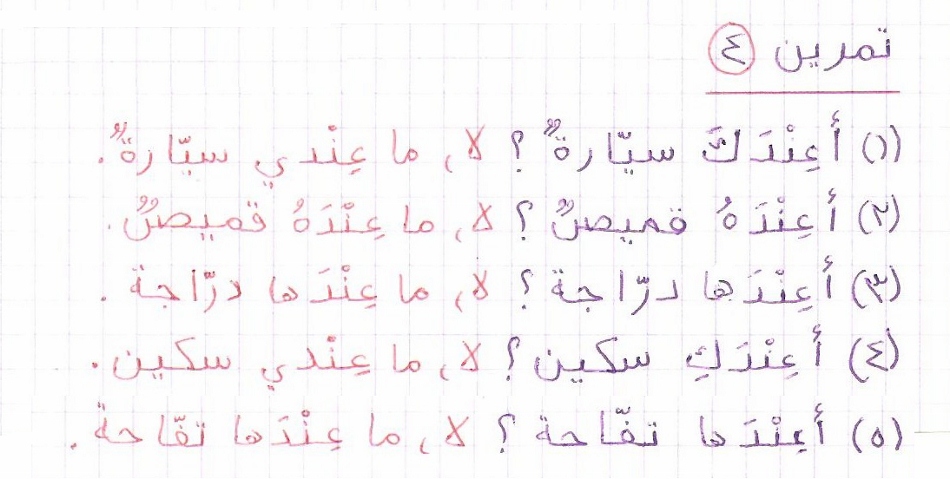 تمرين ٤
(١) أَعِنْدَكَ سيّارةٌ ؟ لا, ما عِنْدي سيّارةٌ.
(٢) أعِنْدَهُ قميصٌ ؟ لا, ما عِنْدَهُ قميصٌ.
(٣) أعِنْدَها درّاجة ؟ لا, ما عِنْدَها درّاجة.
(٤) أعِنْدَكِ سكين ؟ لا, ما عِنْدي سكين.
(٥) أعِنْدَها تفّاحة ؟ لا, ما عِنْدَها تفّاحة.